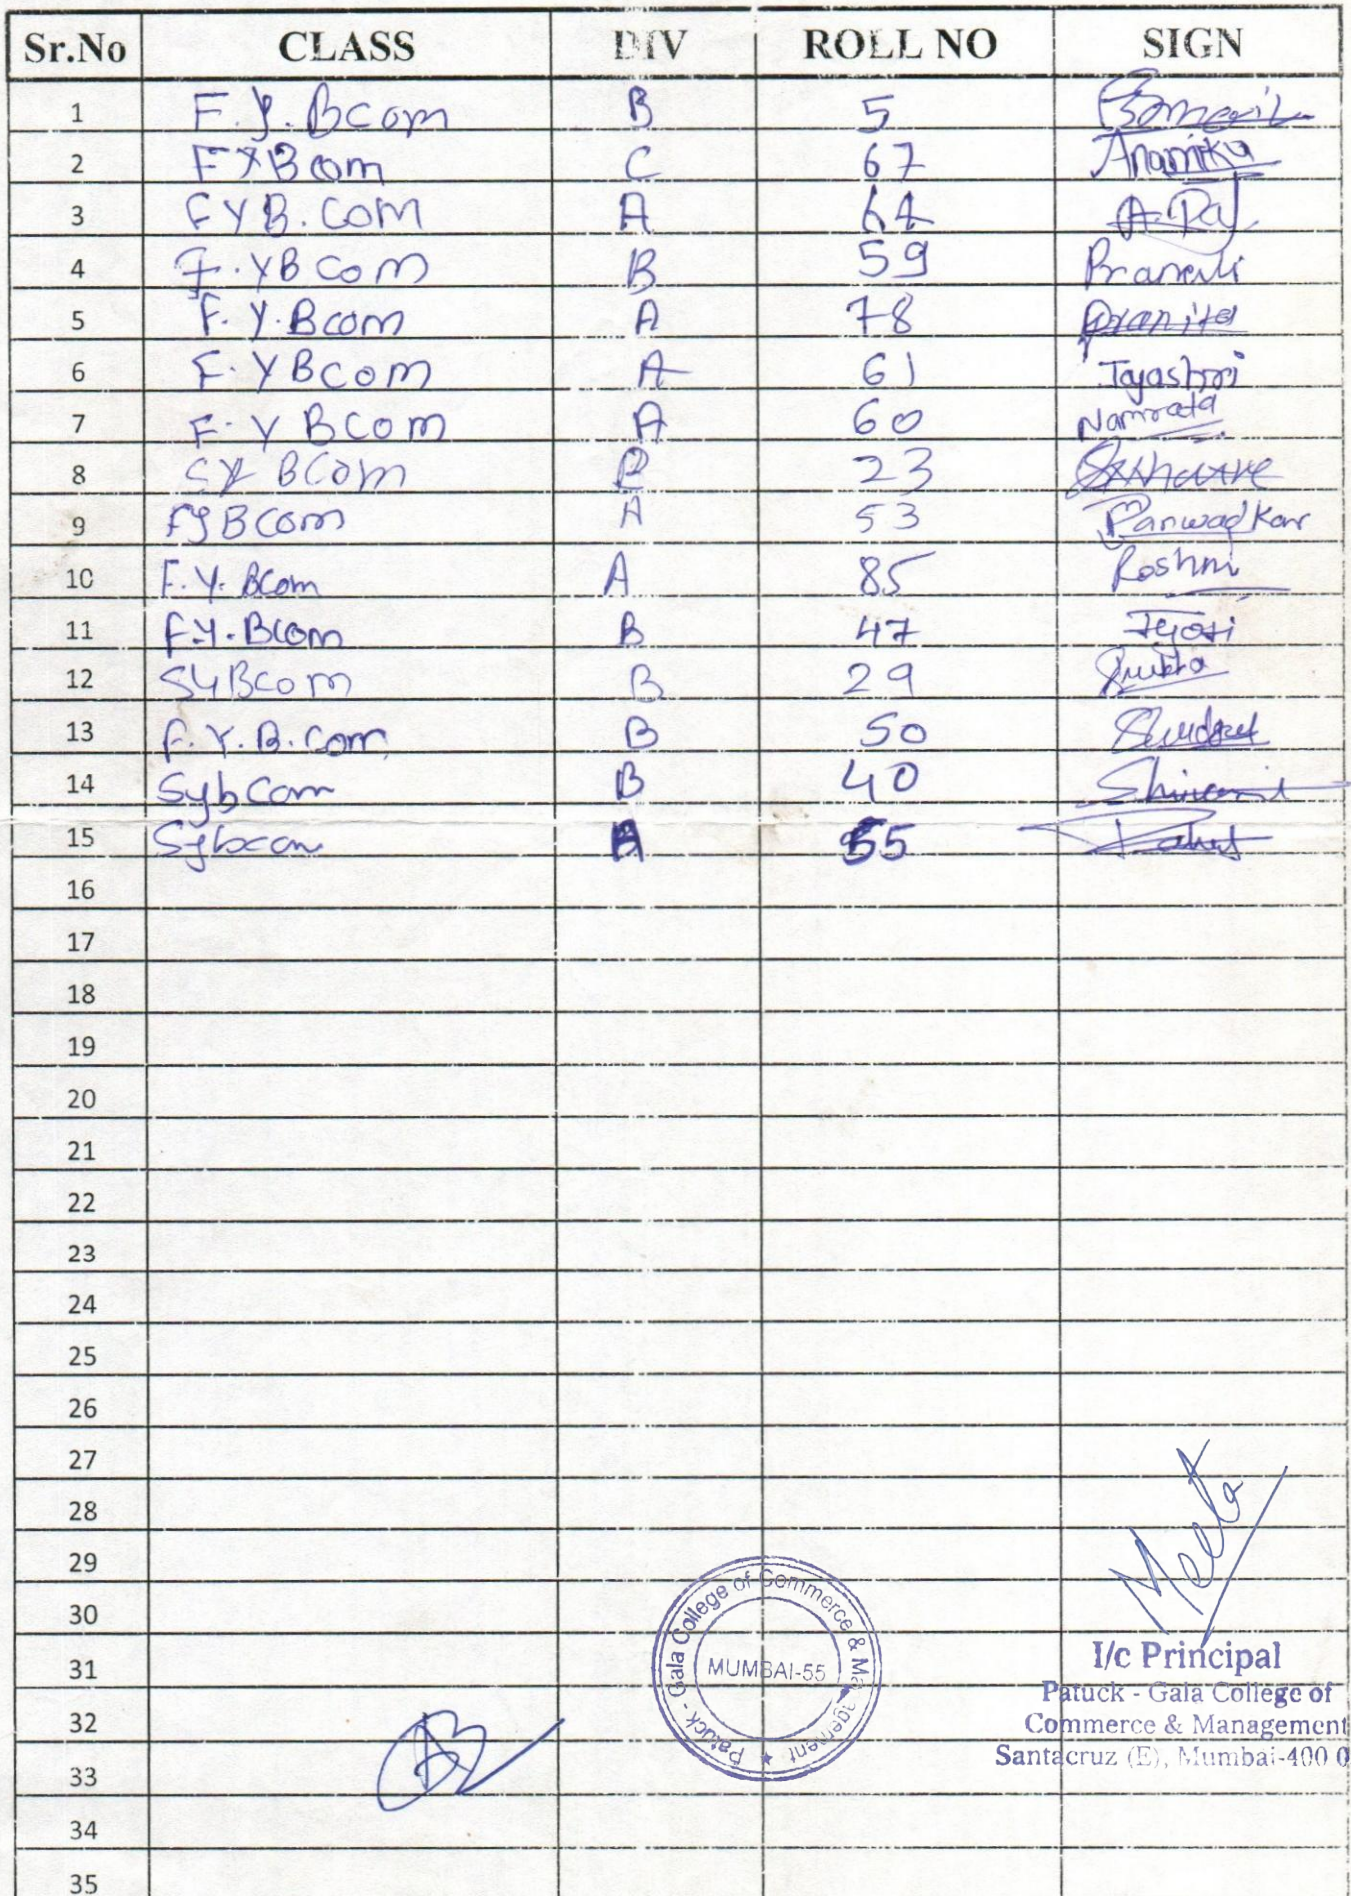 Sr.No CLASS DIV ROLL NO SIGN
1 F.Y. Bcom B 5
2 FYBcom C 67 Anamika
3 FYB.COM A 64 A.Raj
4 F.YBcom B 59 Pranali
5 F.Y.Bcom A 78 Pranita
6 F.YBcom A 61 Jayashri
7 F.Y Bcom A 60 Namrata
8 SY BCom B 23
9 FYBCom A 53 Panwadkar
10 F.Y. Bcom A 85 Roshni
11 F.Y.Bcom B 47 Jyoti
12 SYBcom B 29
13 F.Y.B.Com B 50
14 SybCom B 40 Shivani
15 Sybcom A 55
16
17
18
19
20
21
22
23
24
25
26
27
28
29
30
31
32
33
34
35
Meeta
Patuck - Gala College of Commerce & Management
MUMBAI-55
I/c Principal
Patuck - Gala College of
Commerce & Management
Santacruz (E), Mumbai-400 0